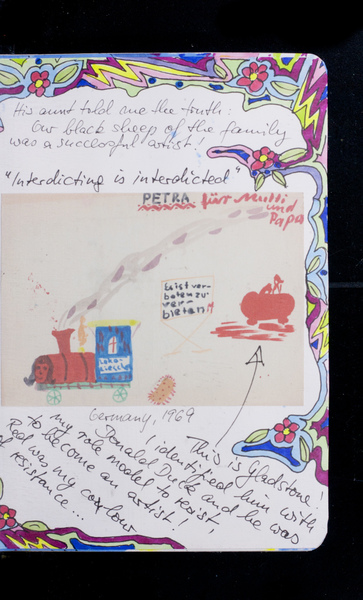 His aunt told me the truth:
Our black sheep of the family
was a successful artist!
"Interdicting is interdicted"
PETRA fürr Mutti
und
Papa
Es ist ver-
boten zu
ver-
bieten!!
Germany, 1969
This is Gladstone!
I identified him with
Donald Duck and he was
my role model to resist,
to become an artist!
Red was my colour
of resistance...